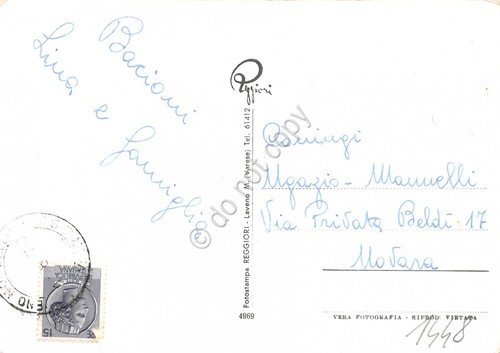 Bacioni
Lina e Famiglia
Reggiori
Fotostampa REGGIORI - Laveno M. (Varese) Tel. 61412
4969
Ugazio - Mannelli
Via Privata Beldì 17
Novara
VERA FOTOGRAFIA - RIPROD. VIETATA
1448
15
© do not copy